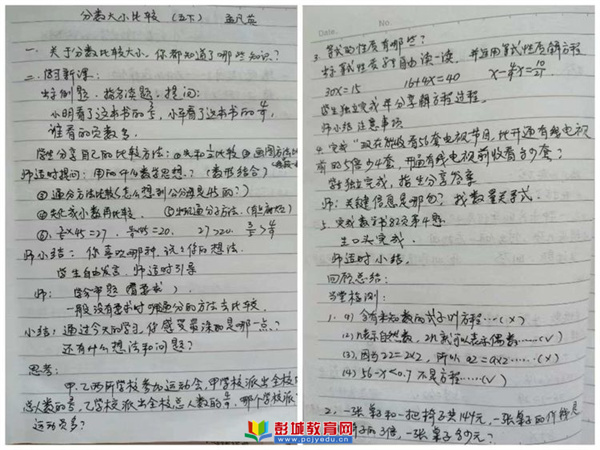 分数大小比较 (五下) 孟凡英
一、关于分数比较大小,你都知道了哪些知识?
二、探讨新课:
出示例题,指名读题,提问:
小明看了这本书的3/5,小华看了这本书的4/9,
谁看的页数多。
学生分享自己的比较方法:①先和1/2比较 ②画图方法比较
师适时提问:用的什么数学思想?(数形结合)
③通分方法比较(怎么想到公分母是45的?)
④先化成小数再比较
⑥ 3/5×45=27, 4/9×45=20. 27>20. 3/5>4/9
师小结:你喜欢哪种,说说你的想法.
学生自由发言,师适时引导
师:
一般没有要求时
通分的方法去比较.
小结:通过今天的学习,你感受最深的是哪一点、?
还有什么想法和问题?
思考:
甲、乙两所学校参加运动会,甲学校派出全校
总人数的
乙学校派出全校总人数的
哪个学校派
运动员多?
Date. No.
3. 等式的性质有哪些?
出示等式性质,自由读一读,并且用等式性质解方程
30x=15 16+4x=40 x-4/7x=10/21
学生独立完成并分享解方程过程.
师小结注意事项
4. 完成“现在能收看56套电视节目,比开通有线电视
前的5倍少4套,开通有线电视前收看多少套?
学生独立完成,指生分享答案
师:关键信息是哪句?找数量关系式.
5. 完成数学书82页第4题.
生口头完成.
师适时小结.
回顾总结:
当堂检测:
1. (1) 含有未知数的式子叫方程……(×)
(2) n表示自然数,2n就可以表示偶数……(√)
(3) 因为2²=2×2,所以a²=a×2……(×)
(4) 56-x<0.7 不是方程……(√)
2. 一张桌子和一把椅子共144元,一张桌子的价钱是
椅子的3倍,一张桌子多少元?
彭城教育网
www.pcjyedu.cn